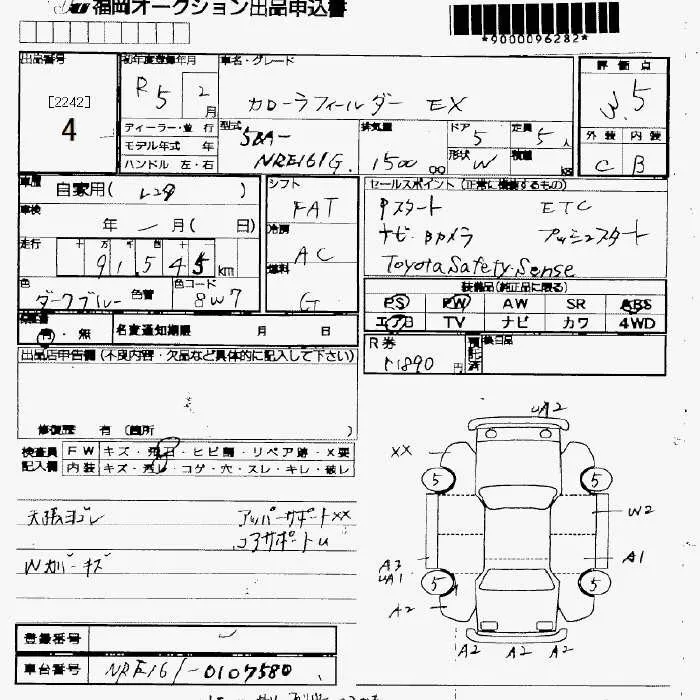 福岡オークション出品申込書
*9000096282*
出品番号
[2242]
4
初年度登録年月
R5 2月
車名・グレード
カローラフィールダー EX
評価点
W.5
外装 内装
C B
ディーラー・並行
モデル年式 年
ハンドル 左・右
型式
5BA-
NRE161G
排気量
1500 cc
ドア 5
形状 W
定員 5人
積量 kg
車歴 自家用( レンタ )
車検 年 月( 日)
走行
十 万 千 百 十
91,545 km
色 ダークブルー 色替
色コード 8W7
シフト
FAT
冷房
AC
燃料
G
セールスポイント(正常に機能するもの)
Pスタート ETC
ナビ・Bカメラ プッシュスタート
Toyota Safety Sense
装備品(純正品に限る)
PS PW AW SR ABS
エアB TV ナビ カワ 4WD
保証書
有・無
名変通知期限 月 日
R券
11890円
預託済
後日品
出品店申告欄(不良内容・欠品など具体的に記入して下さい)
修復歴 有(箇所 )
検査員記入欄
FW キズ・飛石・ヒビ割・リペア跡・X要
内装 キズ・汚レ・コゲ・穴・スレ・キレ・破レ
天張ヨゴレ アッパーサポートXX
コアサポートU
Wカバーキズ
UA2
XX
5 5
W2
A3
UA1
A1
5 5
A2
A2 A2 A2
登録番号
車台番号 NRE161-0107580